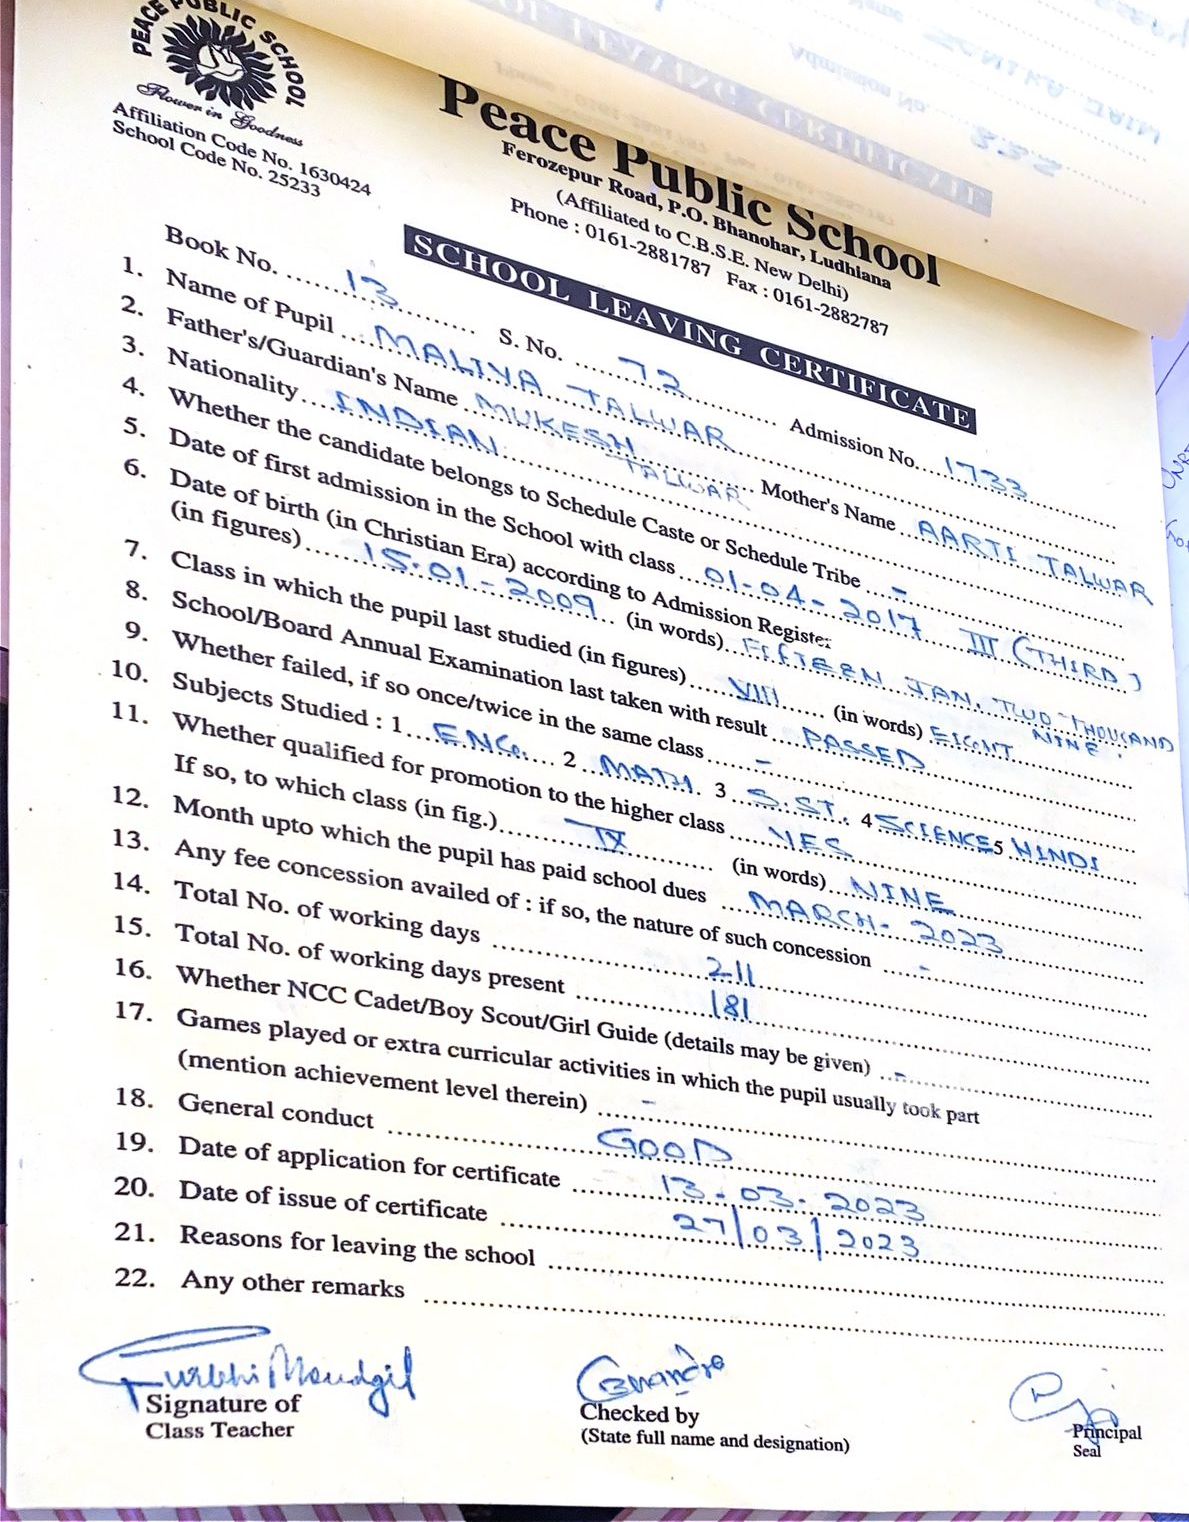 PEACE PUBLIC SCHOOL
Flower in Goodness
Affiliation Code No. 1630424
School Code No. 25233
Peace Public School
Ferozepur Road, P.O. Bhanohar, Ludhiana
(Affiliated to C.B.S.E. New Delhi)
Phone : 0161-2881787 Fax : 0161-2882787
SCHOOL LEAVING CERTIFICATE
Book No. 13 S. No. 72 Admission No. 1733
1. Name of Pupil MALIYA TALWAR
2. Father's/Guardian's Name MUKESH TALWAR Mother's Name AARTI TALWAR
3. Nationality INDIAN
4. Whether the candidate belongs to Schedule Caste or Schedule Tribe -
5. Date of first admission in the School with class 01-04-2017 III (THIRD)
6. Date of birth (in Christian Era) according to Admission Register
(in figures) 15-01-2009 (in words) FIFTEEN JAN, TWO-THOUSAND NINE.
7. Class in which the pupil last studied (in figures) VIII (in words) EIGHT
8. School/Board Annual Examination last taken with result PASSED
9. Whether failed, if so once/twice in the same class -
10. Subjects Studied : 1 ENG. 2 MATH. 3 S.ST. 4 SCIENCE 5 HINDI
11. Whether qualified for promotion to the higher class YES
If so, to which class (in fig.) IX (in words) NINE
12. Month upto which the pupil has paid school dues MARCH-2023
13. Any fee concession availed of : if so, the nature of such concession -
14. Total No. of working days 211
15. Total No. of working days present 181
16. Whether NCC Cadet/Boy Scout/Girl Guide (details may be given) -
17. Games played or extra curricular activities in which the pupil usually took part
(mention achievement level therein) -
18. General conduct GOOD
19. Date of application for certificate 13-03-2023
20. Date of issue of certificate 27/03/2023
21. Reasons for leaving the school
22. Any other remarks
Signature of
Class Teacher
Checked by
(State full name and designation)
Principal
Seal